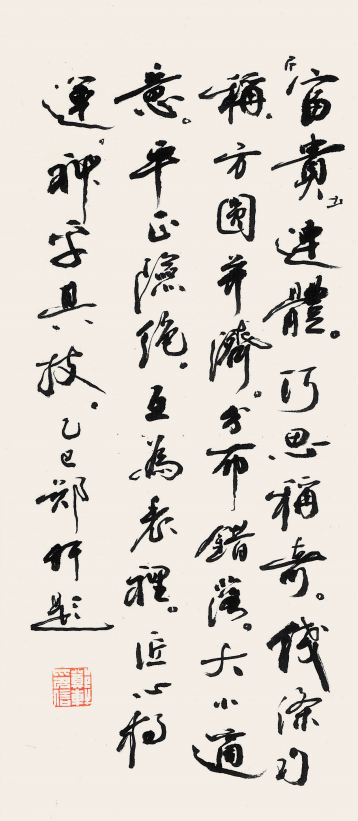 富貴連體。巧思稱奇。綫條勻
稱。方圓并濟。分布錯落。大小適
意。平正險絶。互為表裡。匠心獨
運。神乎其技。乙巳鄭題